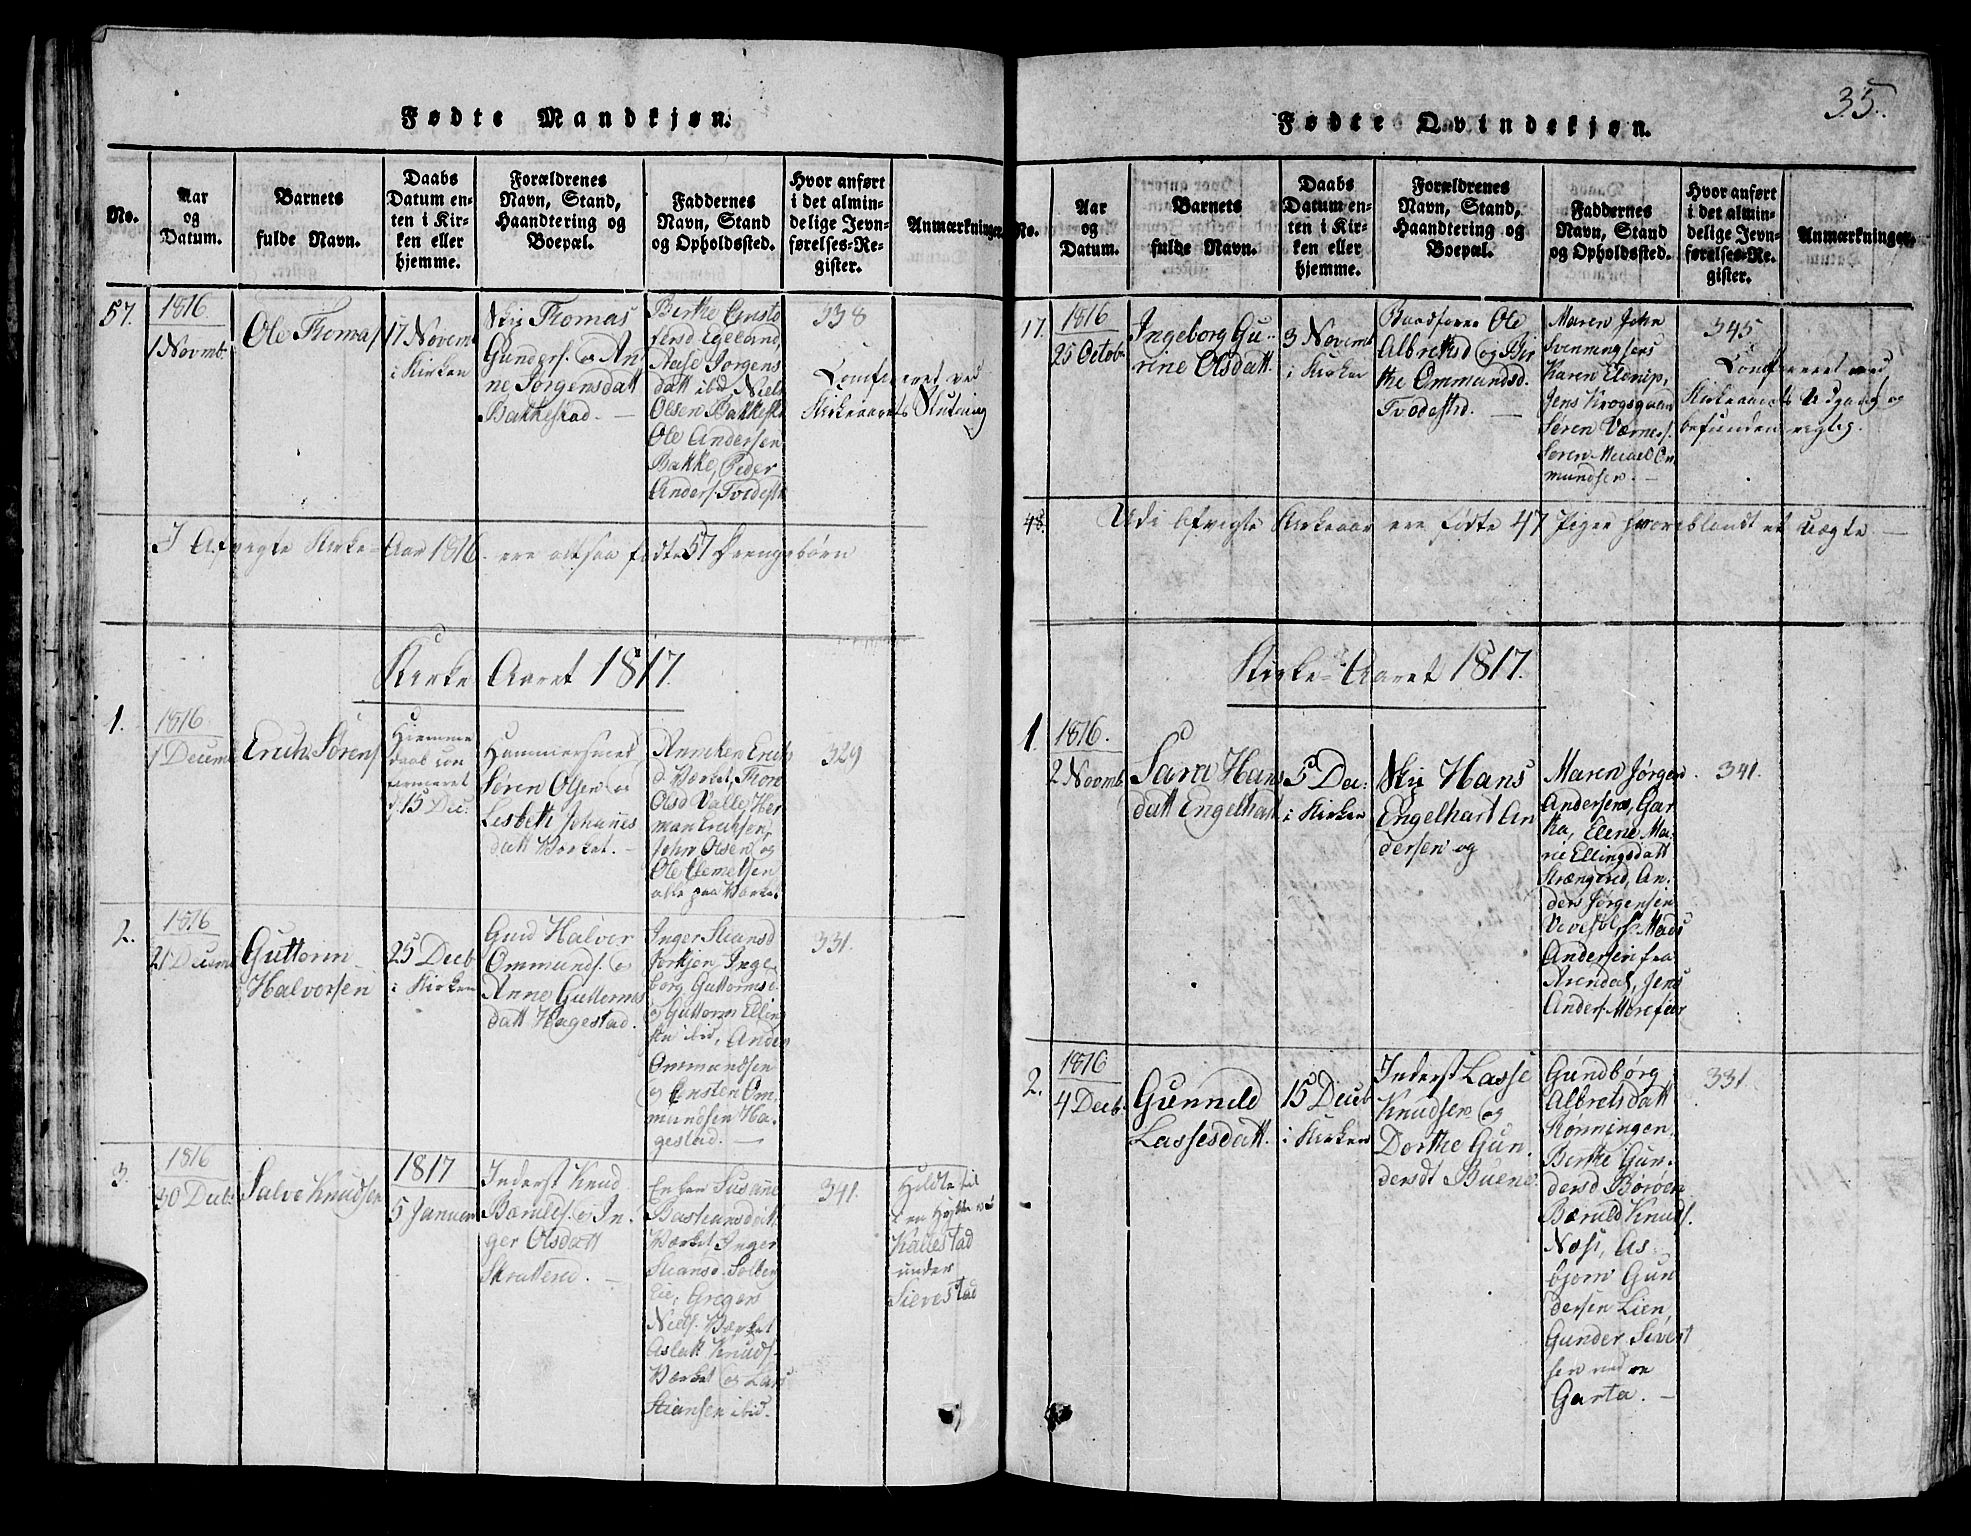 Fødte Mandkjøn.
No.
Aar
og
Datum.
Barnets
fulde Navn.
Daabs
Datum en-
ten i Kir-
ken eller
hjemme.
Forældrenes
Navn, Stand,
Haandtering og
Boepæl.
Faddernes
Navn, Stand
og Opholdssted.
Hvor anført
i det almin-
delige Jevn-
førelses-Re-
gister.
Anmærkninger.
57.
1816
1 Novmb.
Ole Thomas
17 Novem
i Kirken
Thomas
Gunders. og An
ne Jørgensdatt
Bakkestad. —
Berthe
Egeland
Aase Jørgens
datt ibd Niels
Olsen Bakkesta
Ole Andersen
Bakke, Peder
Anders. Tvedestr
338
Confereret ved
Kirkeaarets Slutning
I Afvigte Kirke-Aar 1816 ere altsaa fødte 57 Drengebørn
Kirke Aaret 1817.
1.
1816
1 Decemb
Erich Sørens
Hjemme
daab con
firmeret
d. 15 Dec:
Hammersmed
Søren Olsen og
Lisbeth Johanes
datt Værket. —
Anniken Erich
d. Værket, Thore
Olsd Valle, Her
man Erichsen,
John Olsen og
Ole Clemetsen
alle paa Værket.
329
2.
1816
21 Decemb
Guttorm
Halvorsen
25 Decb
i Kirken
Gmd Halvor
Ommunds. og
Anne Guttorms
datt Hagestad.
Inger Stiansd
Inge
borg Guttormsd
og Guttorm Elling
sen ibid, Anders
Ommundsen
og Ensten Om
mundsen Ha-
gestad. —
331.
3.
1816
30 Decb.
Salve Knudsen
1817
5 Januar
Inderst Knud
og In
ger Olsdatt
Skratterød. —
Enken Susanne
Bastiansdatt
Værket Inger
Stiansd. Solber
lie, Gregers
Niels. Værket
Aslak Knuds.
Værket og Lars
Stiansen ibid.
341.
under
Sievestad
35.
Fødte Qvindekjøn.
No.
Aar
og
Datum.
Barnets
fulde Navn.
Daabs
Datum en-
ten i Kir-
ken eller
hjemme.
Forældrenes
Navn, Stand,
Haandtering og
Boepæl.
Faddernes
Navn, Stand
og Opholdssted.
Hvor anført
i det almin-
delige Jevn-
førelses-Re-
gister.
Anmærkninger.
47.
1816
25 Octob.
Ingeborg Gu-
rine Olsdatt.
3 Novemb
i Kirken
Baadfører Ole
Albretsd og Bir
the Ommundsd.
Tvedestrd. —
Maren John
Svenningsens
Karen
Jens Krogsgaar
Søren Værners.
Søren Michael Om
mundsen. —
345
Confereret ved
Kirkeaarets Udgang og
befunden rigtig.
48.
Udi afvigte Kirkeaar ere fødte 47 Piger hvoriblandt et uægte —
Kirke-Aaret 1817.
1.
1816.
2 Novmb.
Sara Hans
datt Engelhart
5 Dec:
i Kirken
Hans
Engelhart An
dersen og
Maren Jørgen
Andersens, Gar
ta, Elene Ma-
rie Ellingsdatt
Strængered, An
ders Jørgensen
Mads
Andersen fra
Arendal, Jens
Anders. Morefier
341.
2.
1816
4 Decb.
Gunnild
Lassesdatt.
15 Decb
i Kirken
Inderst Lasse
Knudsen og
Dorthe Gun
dersdt Buene.
Gundbørg
Albretsdatt
Rønningen.
Berthe Gun
dersd Børøen
Bærulf Knuds.
Næs, As-
bjørn Gun
dersen Lien
Gunder Sivert
sen
Garta. —
331.